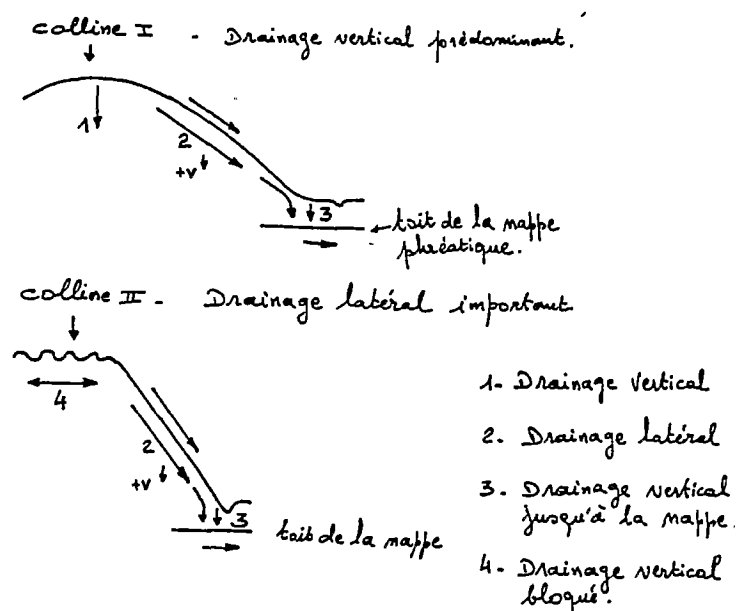 colline I - Drainage vertical prédominant.
1
2
+v
3
toit de la nappe
phréatique.
colline II - Drainage latéral important
4
2
+v
3
toit de la nappe
1- Drainage vertical
2. Drainage latéral
3. Drainage vertical
jusqu'à la nappe.
4- Drainage vertical
bloqué.